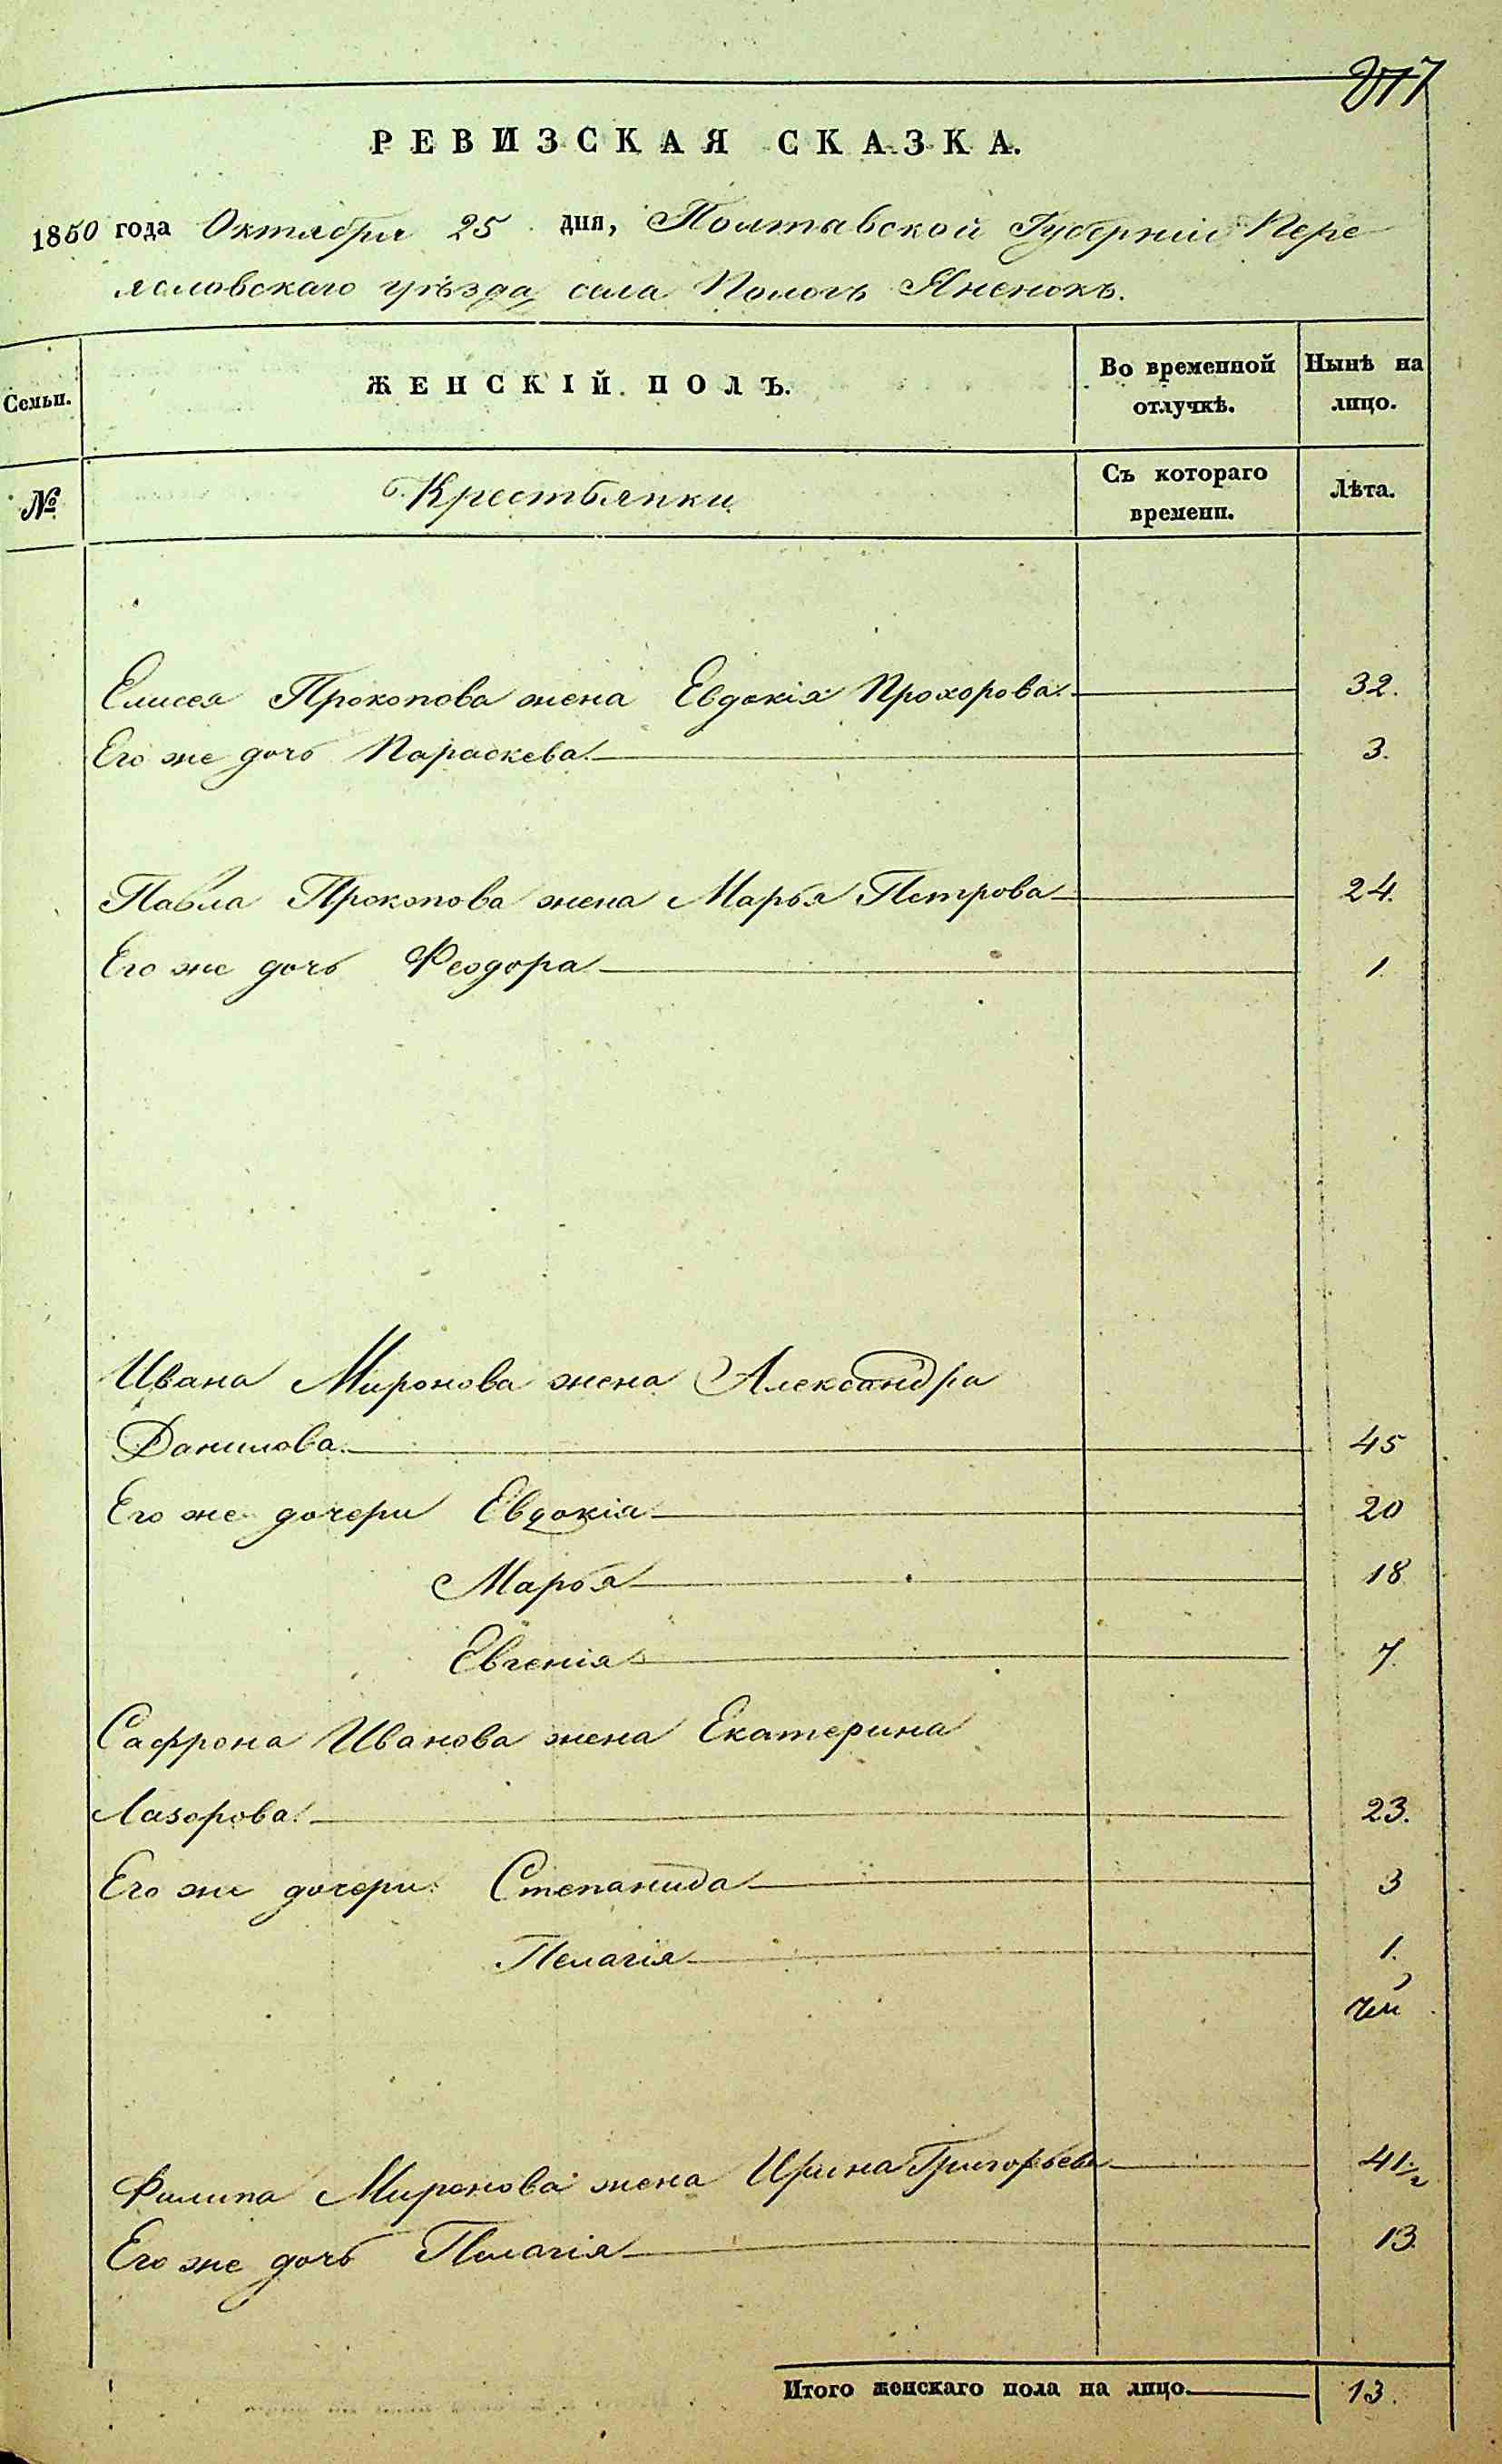 277
РЕВИЗСКАЯ СКАЗКА.
1850 года Октября 25 дня, Полтавской Губерніи Пере
яславскаго уѣзда села Пологъ Яненокъ.
Семьи.
ЖЕНСКІЙ ПОЛЪ.
Во временной отлучкѣ.
Нынѣ на лицо.
№
Крестьянки
Съ котораго времени.
Лѣта.
Елисея Прокопова жена Евдокія Прохорова 32.
Его же дочь Параскева 3.
Павла Прокопова жена Марья Петрова 24.
Его же дочь Феодора 1
Ивана Миронова жена Александра
Данилова 45
Его же дочери Евдокія 20
Марья 18
Евгенія 7.
Сафрона Иванова жена Екатерина
Лазорова 23.
Его же дочери Степанида 3
Пелагія 1.
Филипа Миронова жена Ирина Григорьева 41 1/2
Его же дочь Пелагія 13.
Итого женскаго пола на лицо 13.